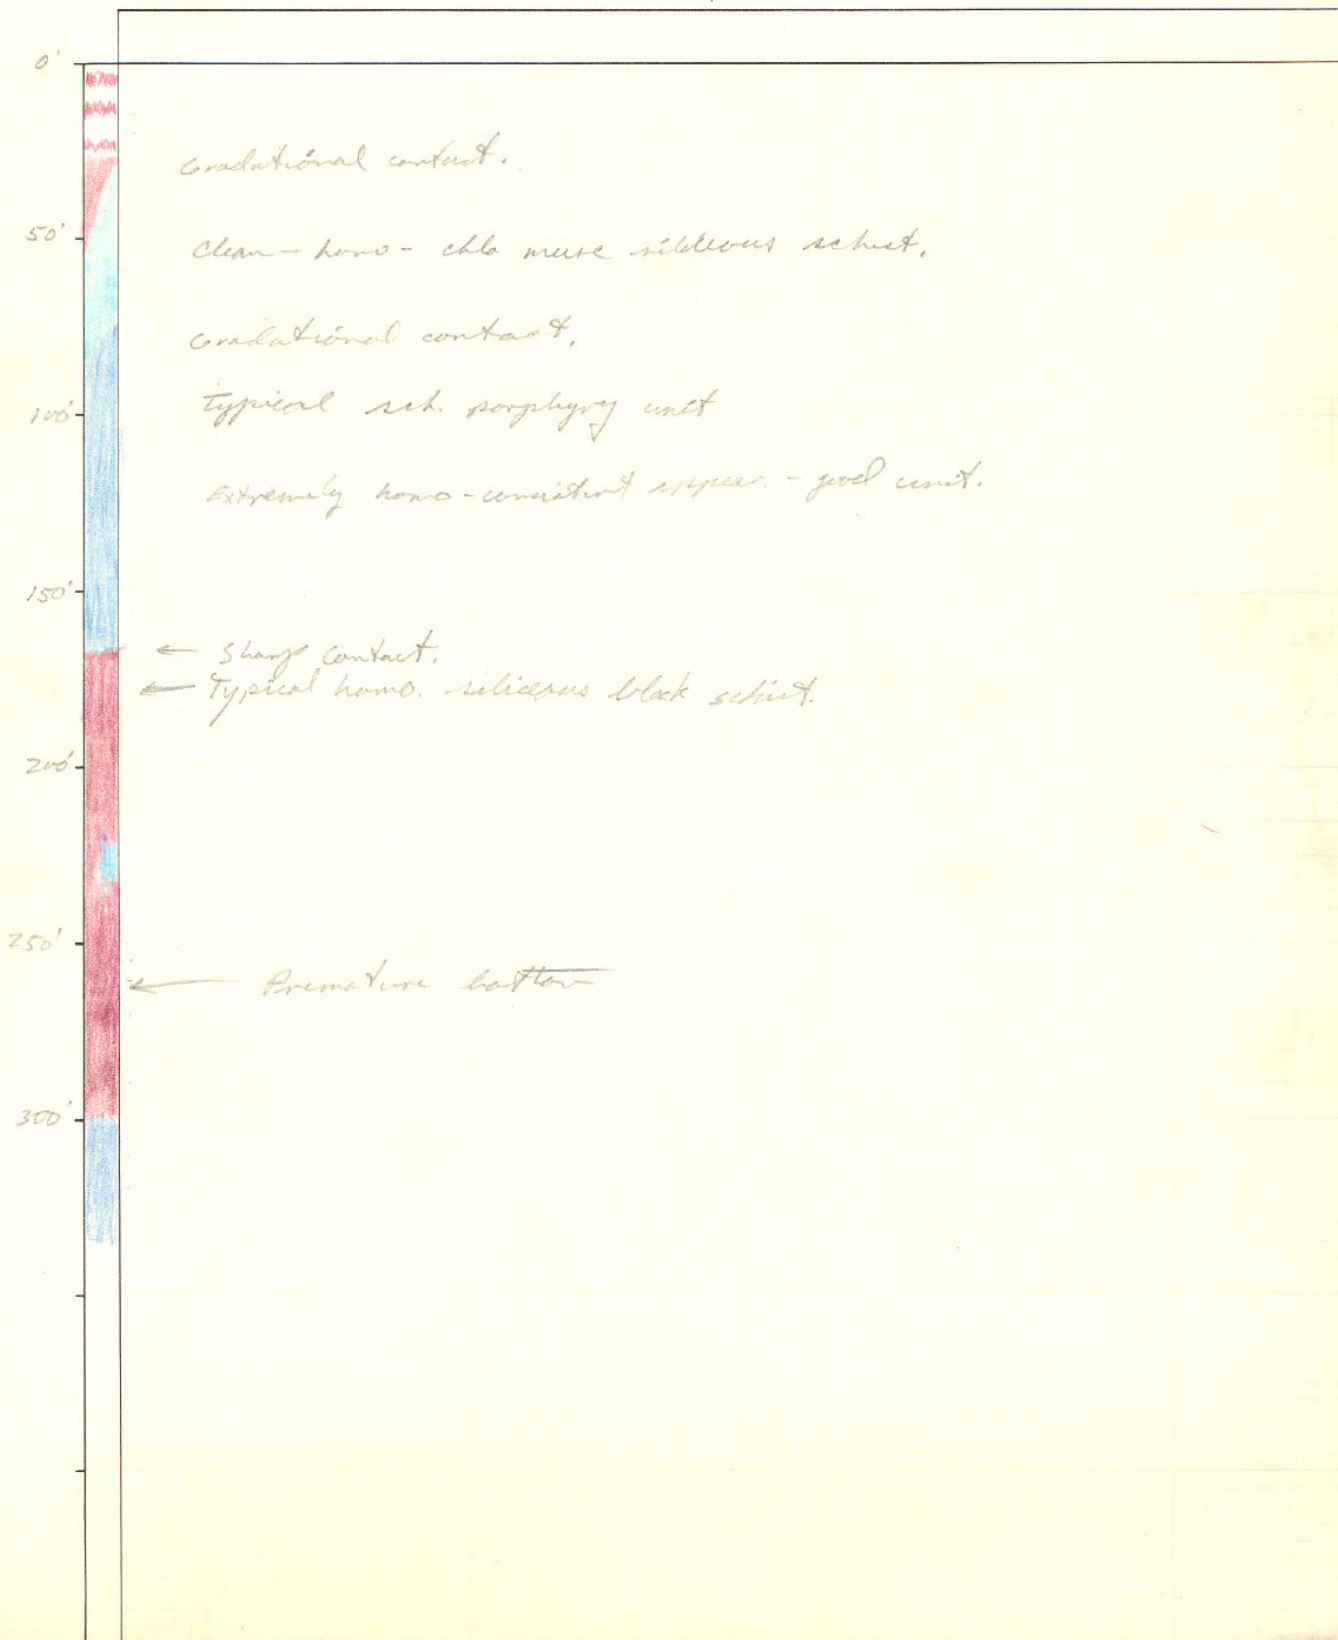 0'
Gradational contact.
50'
Clean - homo - chlo musc siliceous schist.
Gradational contact.
100'
Typical sch. porphyry unit
Extremely homo - consistent appear. - good unit.
150'
← Sharp contact.
← Typical homo. siliceous black schist.
200'
250'
← Premature bottom
300'